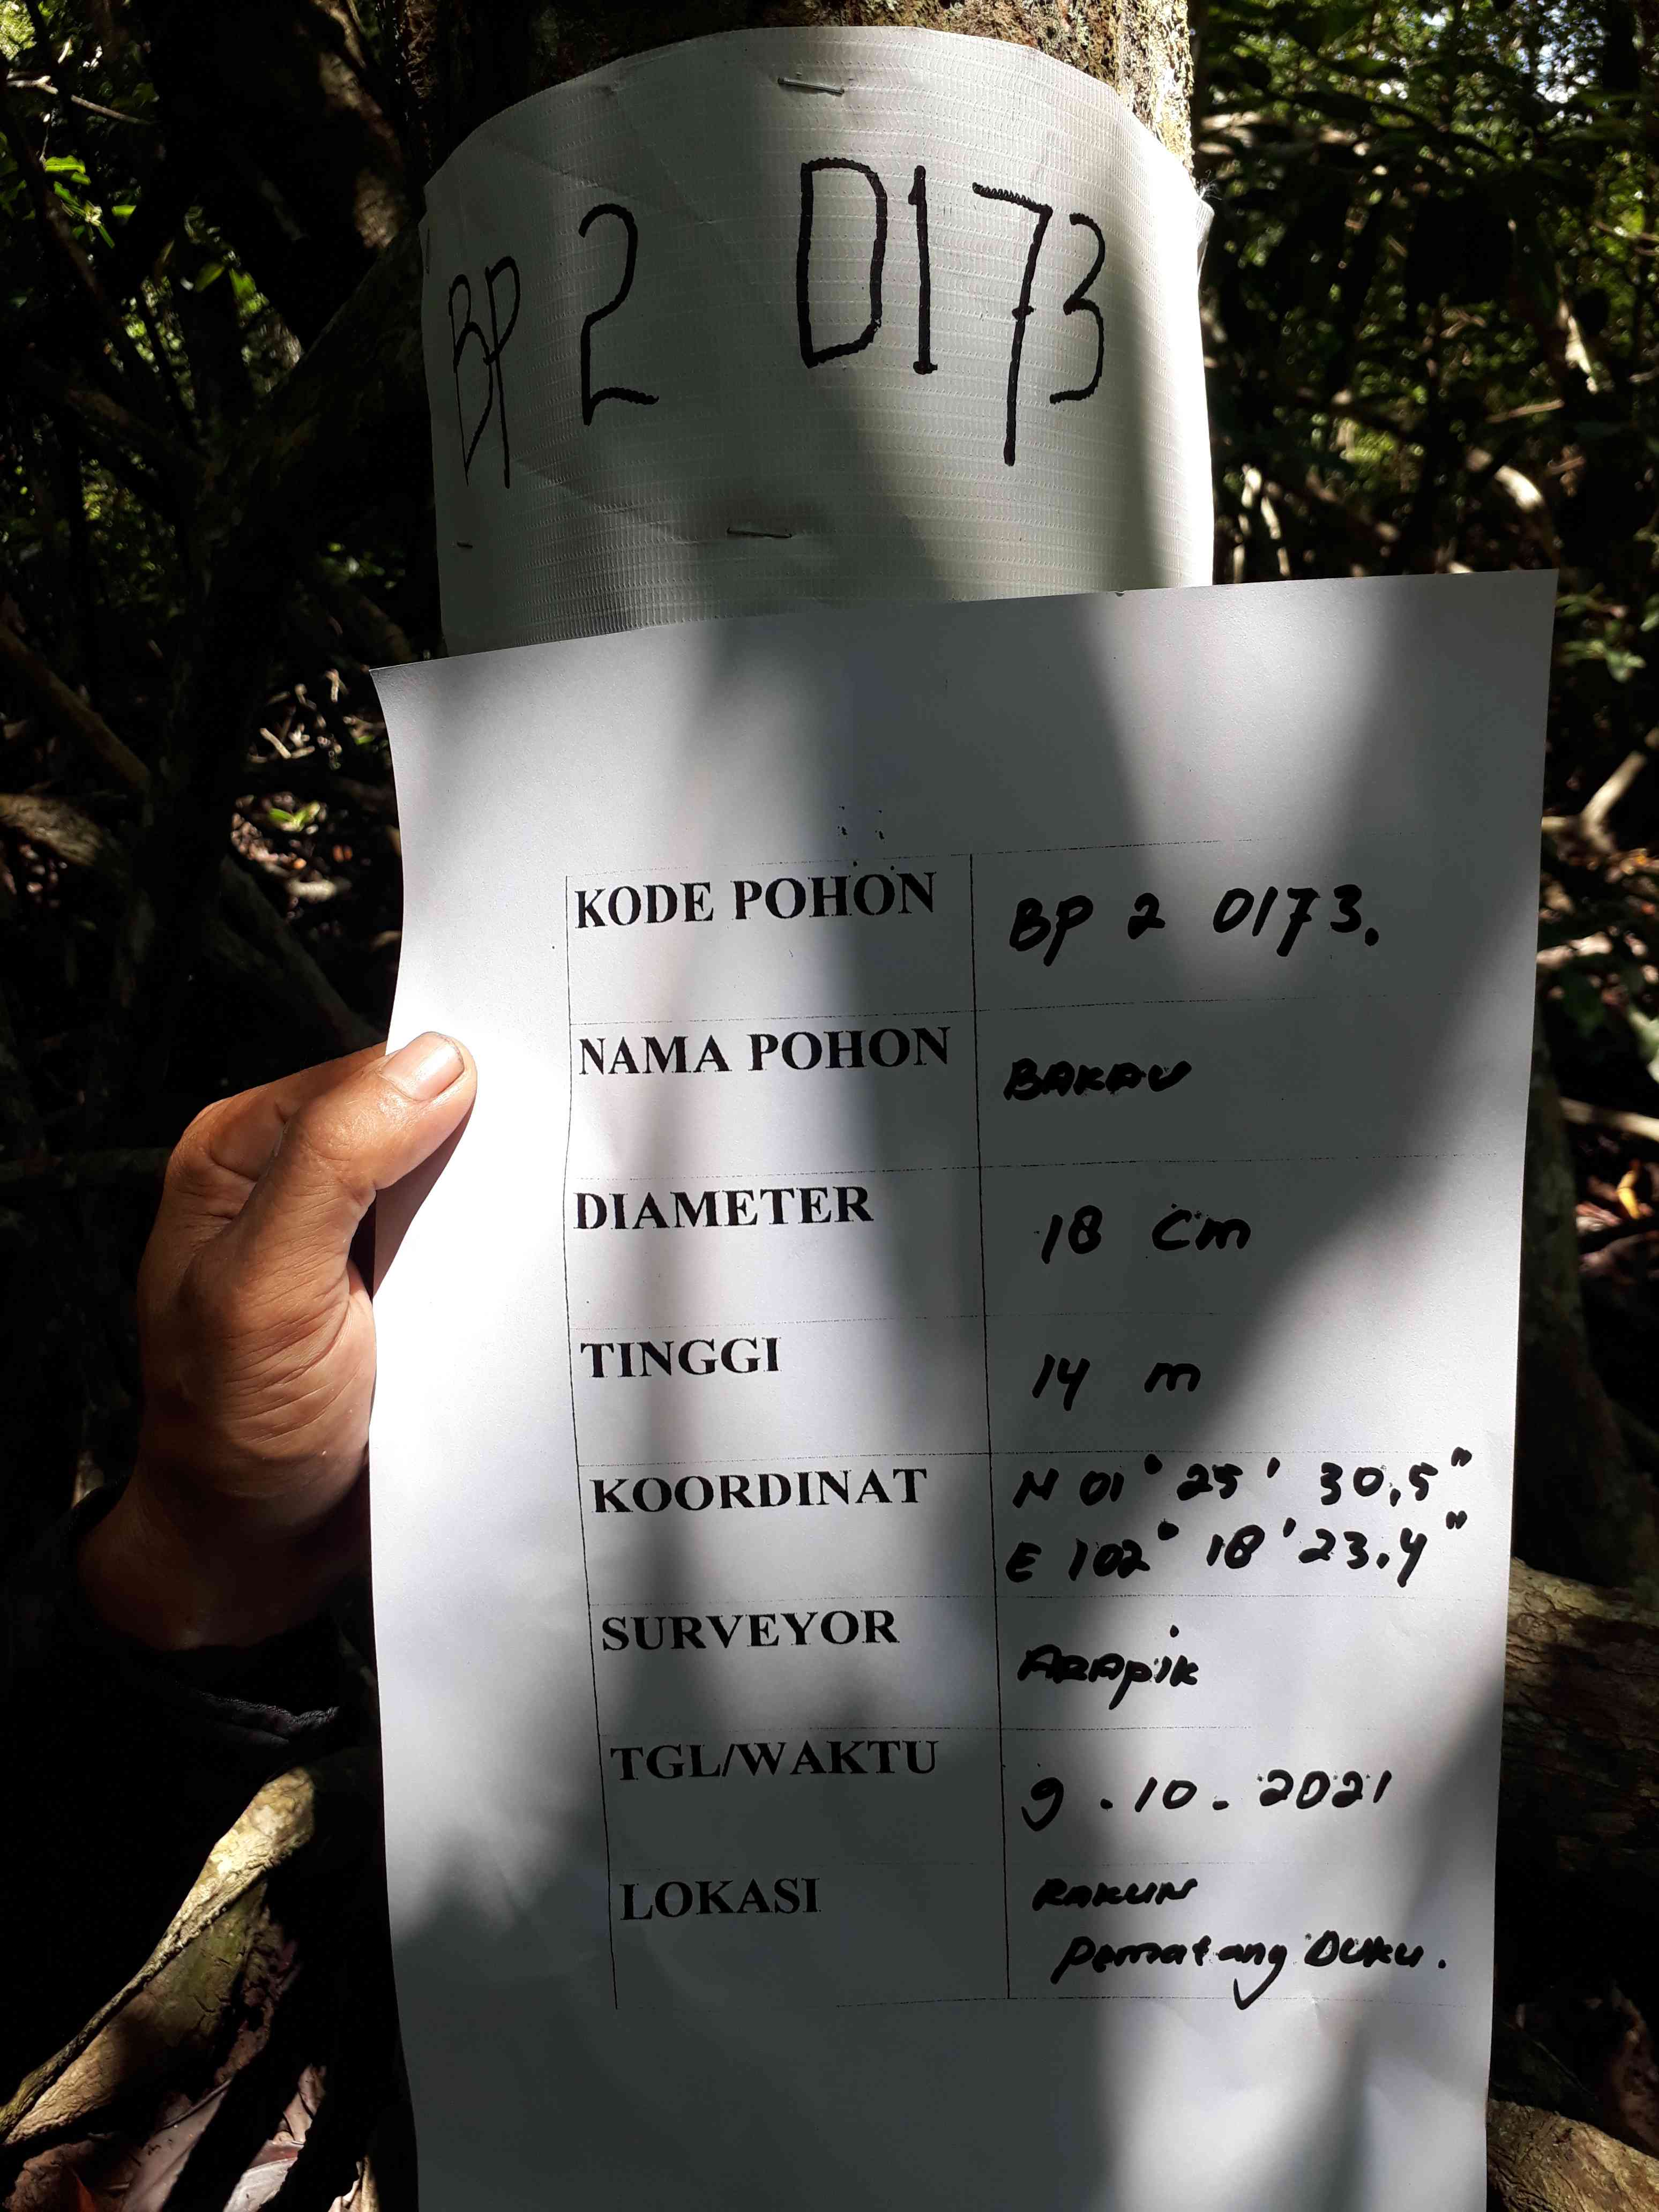 BP 2 0173
KODE POHON BP 2 0173.
NAMA POHON BAKAU
DIAMETER 18 cm
TINGGI 14 m
KOORDINAT N 01° 25' 30,5"
E 102° 18' 23.4"
SURVEYOR ARApik
TGL/WAKTU 9.10.2021
LOKASI RAKUN
Pematang DUKU.